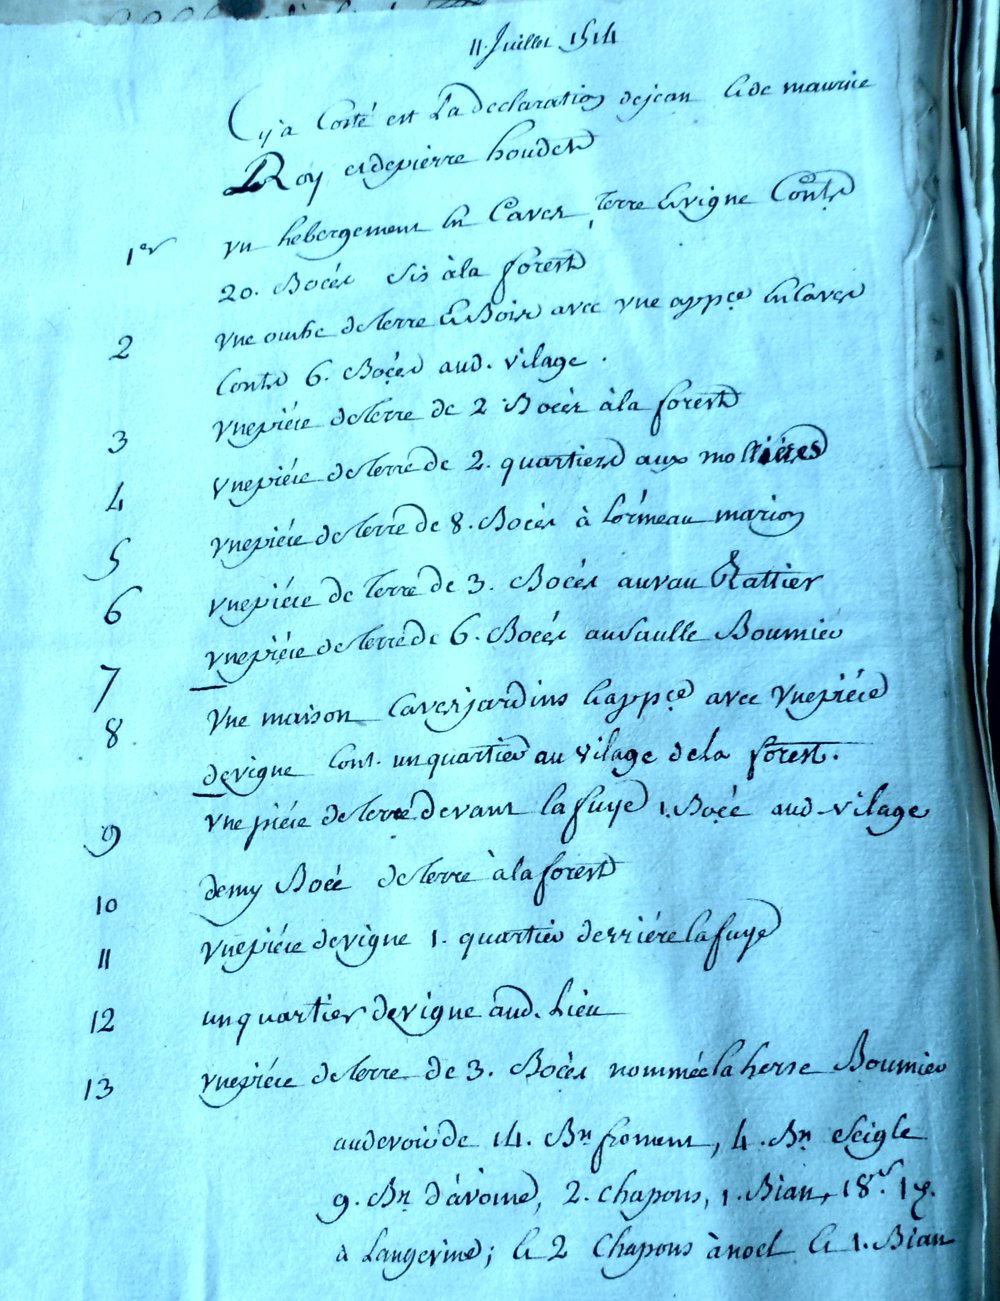 11. Juillet 1514
Cy a Costé est La declaration de jean & de maurice
Le Roy et de pierre houdet
1er vn hébergement en Caves, Terre & vigne Conte
20. Bocés sis à la forest
2 vne ouche de Terre & Bois avec vne appçe en caves
Conte 6. Bocés aud. vilage.
3 vne piéce de Terre de 2 Bocés à la forest
4 vne piéce de Terre de 2. quartiers aux mollières
5 vne piéce de Terre de 8. Bocés à L'ormeau marion
6 vne piéce de Terre de 3. Bocés au vau Rattier
7 vne piéce de Terre de 6. Bocés au Saulle Boumier
8 vne maison Caves jardins & appçe avec vne piéce
de vigne Cont. un quartier au vilage de la forest.
9 vne piéce de Terre devant la fuye 1. Bocé aud. vilage
10 demy Bocé de Terre à la forest
11 vne piéce de vigne 1. quartier derriére la fuye
12 un quartier de vigne aud. Lieu
13 vne piéce de Terre de 3. Bocés nommée la herse Boumier
au devoir de 14. Bx froment, 4. Bx seigle
9. Bx d'avoine, 2. chapons, 1. Bian, 18s. 1d.
à Langevine; & 2 Chapons à noel & 1. Bian